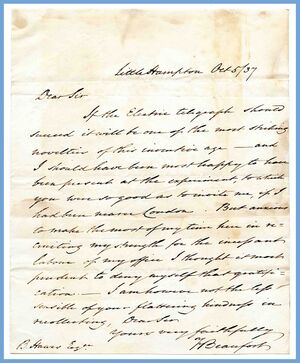 Little Hampton Oct 5/37
Dear Sir
If the Electric telegraph should
succeed it will be one of the most striking
novelties of this inventive age – and
I should have been most happy to have
been present at the experiment to which
you were so good as to invite me if I
had been nearer London. But anxious
to make the most of my time here in re-
cruiting my strength for the incessant
labour of my office I thought it most
prudent to deny myself that gratifi-
cation – I am however not the less
sensible of your flattering kindness in
recollecting, Dear Sir
Yours very faithfully
F Beaufort
B. Hawes Esqre